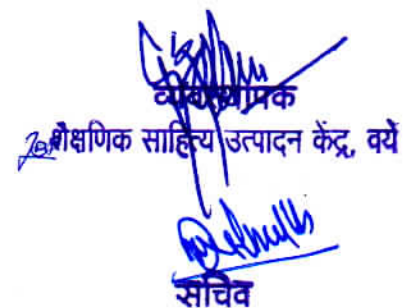 व्यवस्थापक
शैक्षणिक साहित्य उत्पादन केंद्र, वर्ये
सचिव